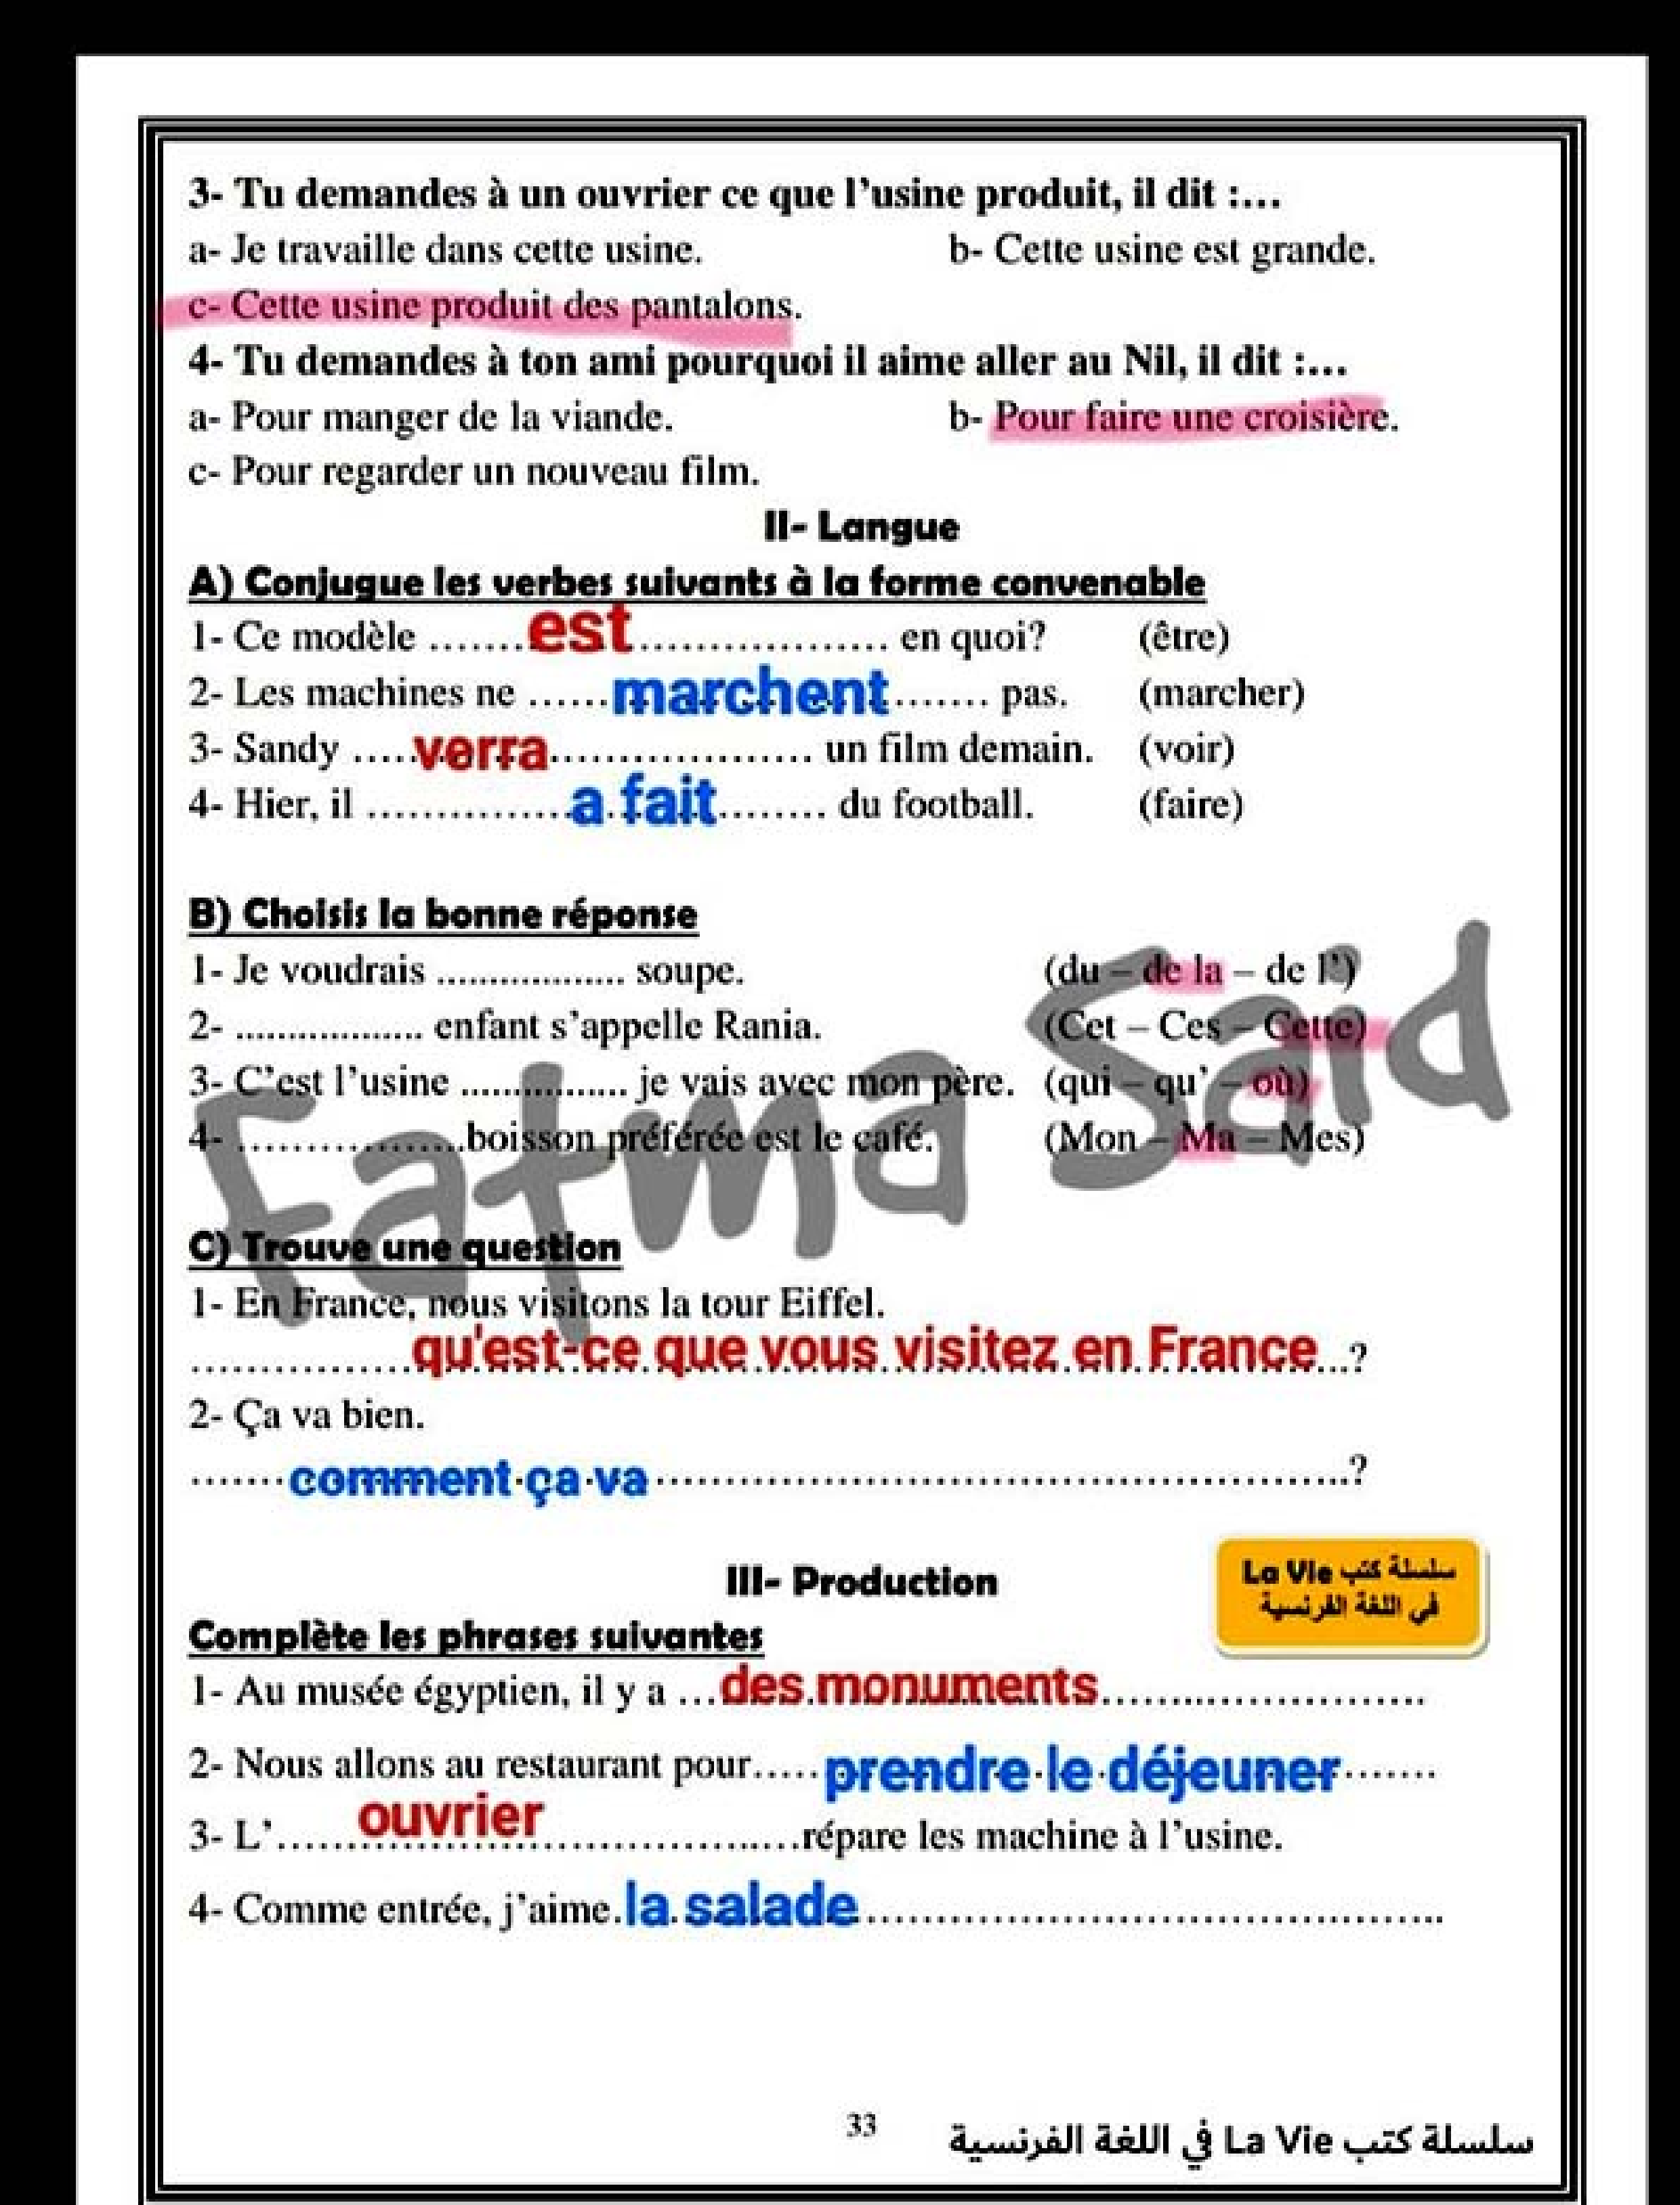 3- Tu demandes à un ouvrier ce que l’usine produit, il dit :...
a- Je travaille dans cette usine. b- Cette usine est grande.
c- Cette usine produit des pantalons.
4- Tu demandes à ton ami pourquoi il aime aller au Nil, il dit :...
a- Pour manger de la viande. b- Pour faire une croisière.
c- Pour regarder un nouveau film.
II- Langue
A) Conjugue les verbes suivants à la forme convenable
1- Ce modèle .......est.................. en quoi? (être)
2- Les machines ne ......marchent....... pas. (marcher)
3- Sandy ....verra................... un film demain. (voir)
4- Hier, il ...............a fait........ du football. (faire)
B) Choisis la bonne réponse
1- Je voudrais .................. soupe. (du – de la – de l’)
2- .................. enfant s’appelle Rania. (Cet – Ces – Cette)
3- C’est l’usine ................ je vais avec mon père. (qui – qu’ – où)
4- .................boisson préférée est le café. (Mon – Ma – Mes)
Fatma Said
C) Trouve une question
1- En France, nous visitons la tour Eiffel.
................qu'est-ce que vous visitez en France...?
2- Ça va bien.
.......comment ça va..................................................?
III- Production
La Vie سلسلة كتب
في اللغة الفرنسية
Complète les phrases suivantes
1- Au musée égyptien, il y a ...des monuments........................
2- Nous allons au restaurant pour.....prendre le déjeuner.......
3- L’......ouvrier...................répare les machine à l’usine.
4- Comme entrée, j’aime.la salade..........................................
33 سلسلة كتب La Vie في اللغة الفرنسية